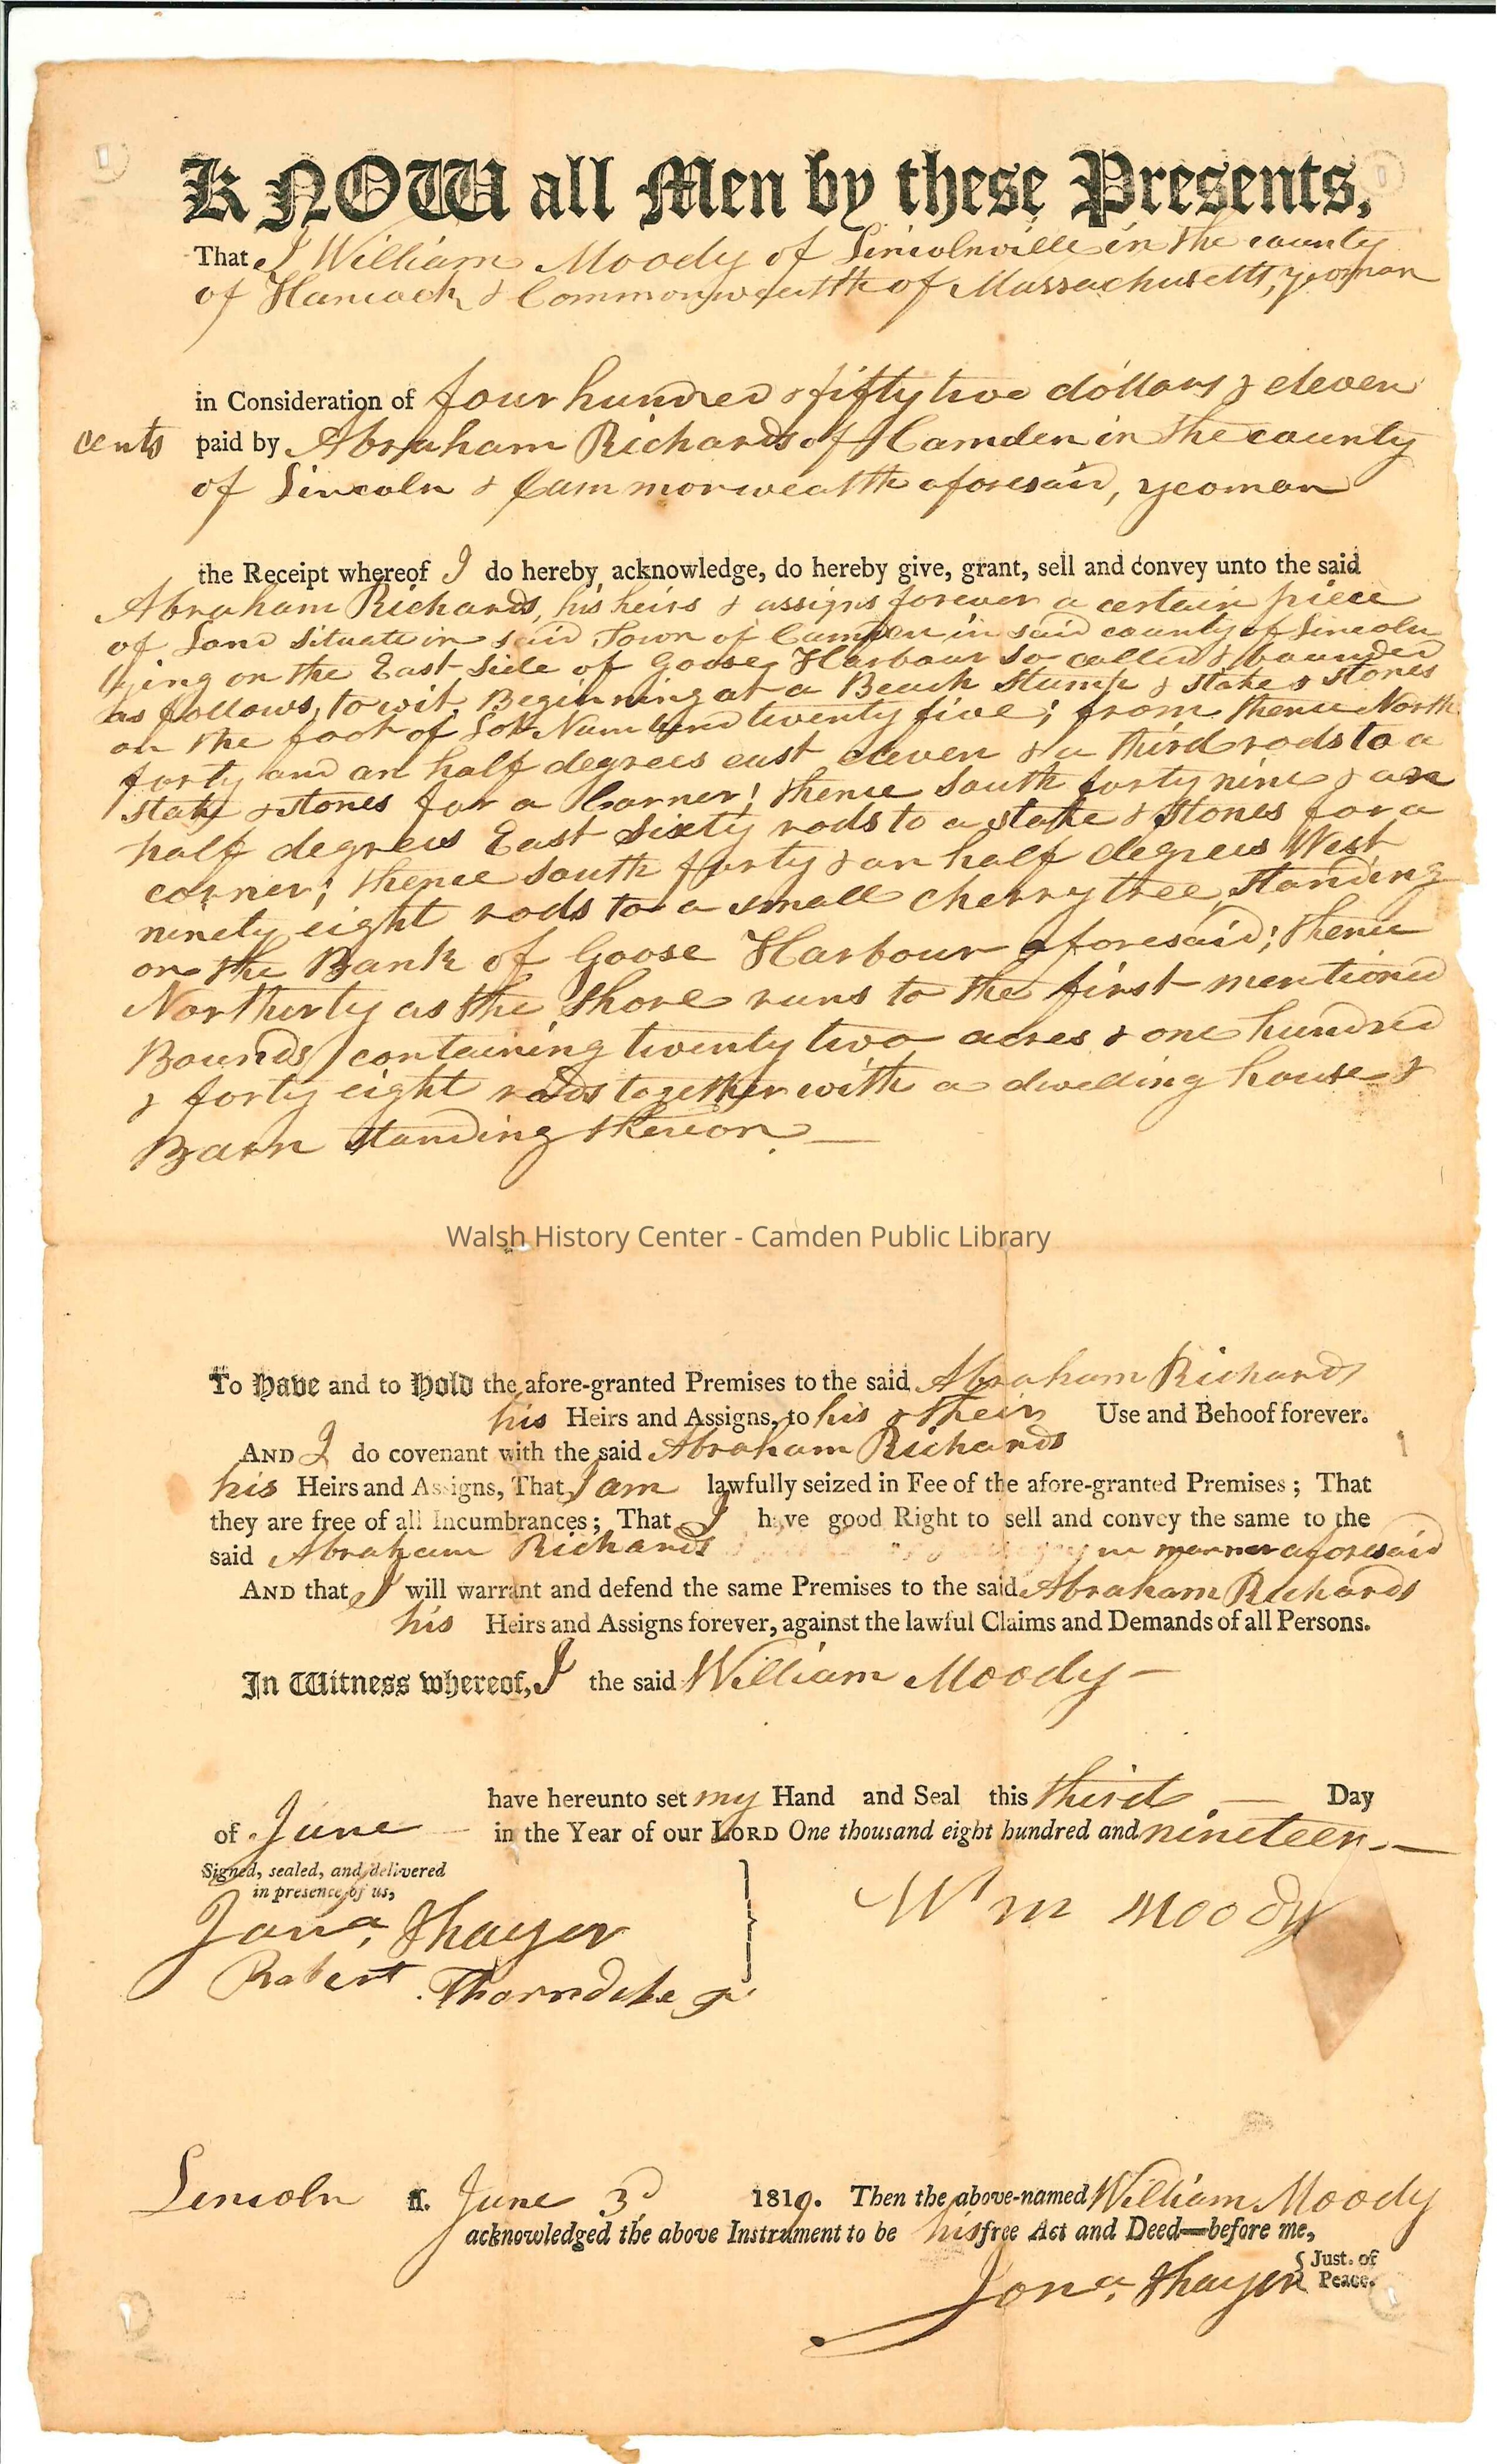 KNOW all Men by these Presents,
That I William Moody of Lincolnville in the county
of Hancock & Commonwealth of Massachusetts, yeoman
in Consideration of four hundred & fifty two dollars & eleven
cents paid by Abraham Richards of Camden in the county
of Lincoln & Commonwealth aforesaid, yeoman
the Receipt whereof I do hereby acknowledge, do hereby give, grant, sell and convey unto the said
Abraham Richards, his heirs & assigns forever a certain piece
of Land situate in said Town of Camden in said county of Lincoln
lying on the East side of Goose Harbour so called & bounded
as follows, to wit, Beginning at a Beach Stump & stake & stones
on the foot of Lot Number twenty five; from thence North
forty and an half degrees east eleven & a third rods to a
stake & stones for a Corner; thence South forty nine & an
half degrees East Sixty rods to a stake & stones for a
corner; thence South forty & an half degrees West
ninety eight rods to a small cherry tree standing
on the Bank of Goose Harbour aforesaid; thence
Northerly as the Shore runs to the first mentioned
Bounds, containing twenty two acres & one hundred
& forty eight rods together with a dwelling house &
Barn standing thereon.
Walsh History Center - Camden Public Library
To Have and to Hold the afore-granted Premises to the said Abraham Richards
his Heirs and Assigns, to his & their Use and Behoof forever.
AND I do covenant with the said Abraham Richards
his Heirs and Assigns, That I am lawfully seized in Fee of the afore-granted Premises; That
they are free of all Incumbrances; That I have good Right to sell and convey the same to the
said Abraham Richards in manner aforesaid
AND that I will warrant and defend the same Premises to the said Abraham Richards
his Heirs and Assigns forever, against the lawful Claims and Demands of all Persons.
In Witness whereof, I the said William Moody
have hereunto set my Hand and Seal this third Day
of June in the Year of our LORD One thousand eight hundred and nineteen
Signed, sealed, and delivered
in presence of us,
Jona. Thayer
Robert Thorndike Jr
Wm Moody
Lincoln ss. June 3d 1819. Then the above-named William Moody
acknowledged the above Instrument to be his free Act and Deed—before me,
Jona. Thayer Just. of
Peace.